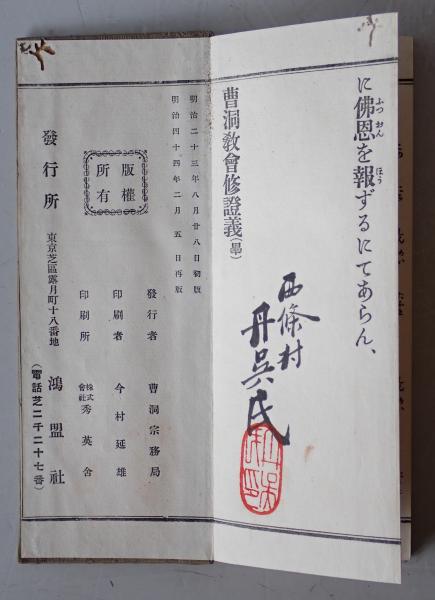 に佛恩を報ずるにてあらん、
曹洞敎會修證義(畢)
西條村
丹呉氏
明治二十三年八月廿八日初版
明治四十四年二月五日再版
版權
所有
發行者 曹洞宗務局
印刷者 今村延雄
印刷所 株式會社 秀英舍
發行所 東京芝區露月町十八番地 鴻盟社
(電話芝二千二十七番)